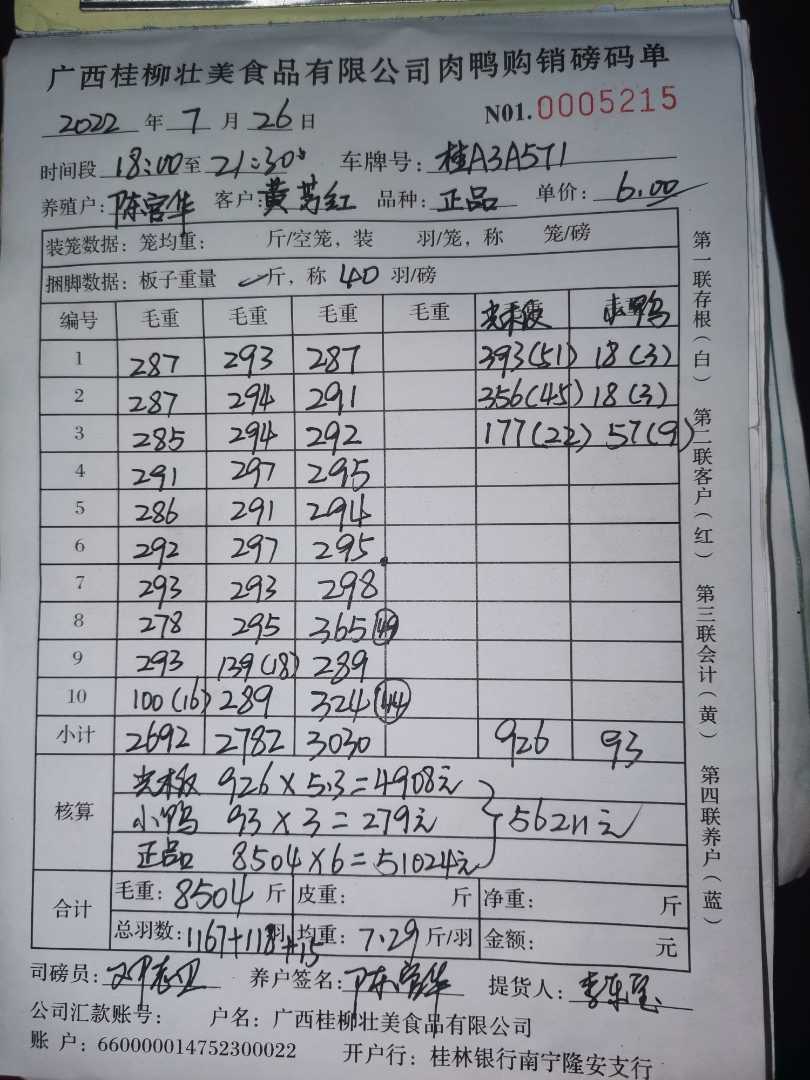 广西桂柳壮美食品有限公司肉鸭购销磅码单
2022 年 7 月 26 日 N01. 0005215
时间段 18:00 至 21:30 车牌号: 桂A3A571
养殖户: 陈宫华 客户: 黄 红 品种: 正品 单价: 6.00
装笼数据: 笼均重: 斤/空笼, 装 羽/笼, 称 笼/磅
捆脚数据: 板子重量 斤, 称 40 羽/磅
编号 毛重 毛重 毛重 毛重 光木板 小鸭
1 287 293 287 393(51) 18(3)
2 287 294 291 356(45) 18(3)
3 285 294 292 177(22) 57(9)
4 291 297 295
5 286 291 294
6 292 297 295
7 293 293 298
8 278 295 365 49
9 293 139(18) 289
10 100(16) 289 324 44
小计 2692 2782 3030 926 93
核算 光木板 926×5.3=4908元
小鸭 93×3=279元 56211元
正品 8504×6=51024元
合计 毛重: 8504 斤 皮重: 斤 净重: 斤
总羽数: 1167+118+15 羽 均重: 7.29 斤/羽 金额: 元
司磅员: 邓 养户签名: 陈宫华 提货人: 李东
公司汇款账号: 户名: 广西桂柳壮美食品有限公司
账 户: 660000014752300022 开户行: 桂林银行南宁隆安支行
第一联存根(白) 第二联客户(红) 第三联会计(黄) 第四联养户(蓝)